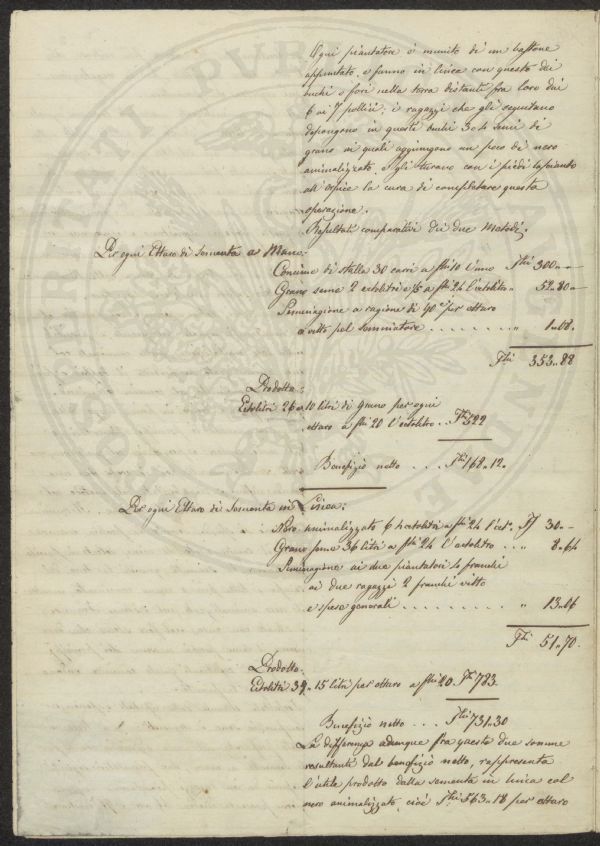 Ogni piantatore è munito di un bastone
appuntato, e fanno in linea con questo dei
buchi o fori nella terra distanti fra loro dai
6 ai 7 pollici; i ragazzi che gli seguitano
depongono in questi buchi 3 o 4 semi di
grano ai quali aggiungono un poco di nero
animalizzato, e gli turano con i piedi lasciando
all'erpice la cura di completare questa
operazione.
Resultati comparativi dei due Metodi.
Per ogni Ettaro di Sementa a Mano:
Concime di stalla 30 carri a fchi 10 l'uno Fchi 300 „ —
Grano seme 2 ectolitri e /5 a fchi 24 l'ectolitro „ 52 „ 80 —
Seminagione a ragione di 40 c per ettaro
e vitto pel seminatore . . . . . . . . „ 1 „ 08.
Fchi 353 „ 88
Prodotto:
Ectolitri 26 „ 10 litri di grano per ogni
ettaro a fchi 20 l'ectolitro . . Fchi 522
Benefizio netto . . . Fchi 168 „ 12 „
Per ogni Ettaro di Sementa in Linea:
Nero animalizzato 6 ectolitri a fchi l'ect. Ff 30 „ —
Grano seme 36 litri a fchi 24 l'ectolitro . . . „ 8 „ 64
Seminagione ai due piantatori franchi
ai due ragazzi 2 franchi vitto
e spese generali . . . . . . . . . . „ 13 „ 06
Fchi 51 „ 70.
Prodotto:
Ectolitri 39 „ 15 litri per ettaro a fchi 20 Fchi 783.
Benefizio netto . . . Fchi 731 „ 30
La differenza adunque fra queste due somme
resultante dal benefizio netto, rappresenta
l'utile prodotto dalla sementa in linea col
nero animalizzato, cioè Fchi 563 „ 18 per ettaro